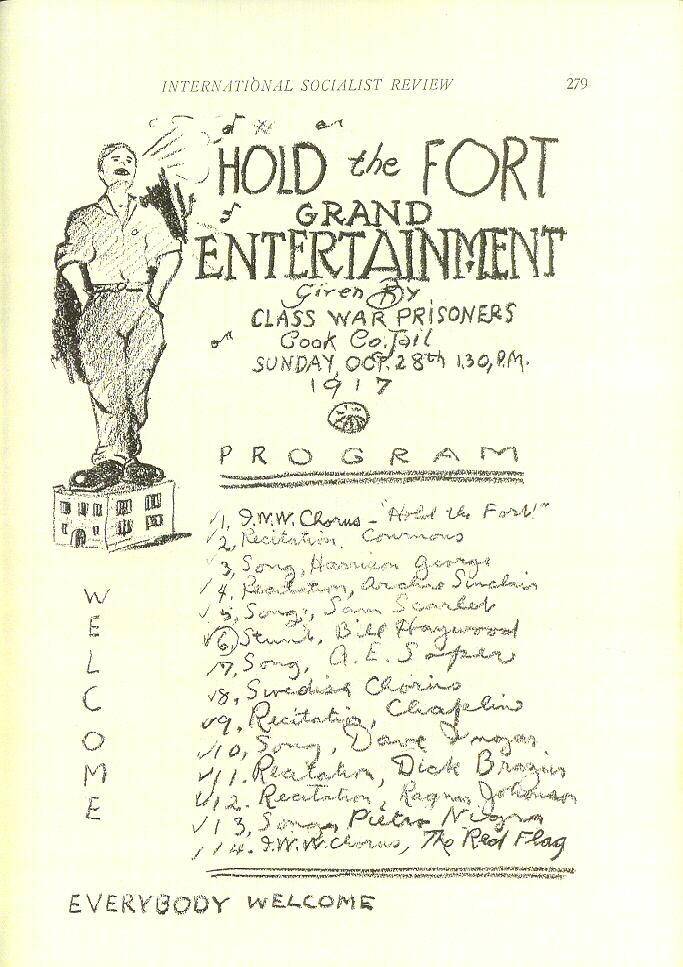 INTERNATIONAL SOCIALIST REVIEW 279
HOLD the FORT
GRAND
ENTERTAINMENT
Given By
CLASS WAR PRISONERS
Cook Co. Jail
SUNDAY, OCT. 28th 1.30, P.M.
1917
PROGRAM
1, I.W.W. Chorus - "Hold the Fort!"
2, Recitation, Cournous
3, Song, Harrison George
4, Recitation, Archie Sinclair
5, Song, Sam Scarlet
6 Stunt, Bill Haywood
7, Song, A.E. Soper
8, Swedish Chorus
9, Recitation, Chaplin
10, Song, Dave
11. Recitation, Dick Brazier
12. Recitation, Ragnar Johanson
13, Song, Pietro Nigra
14. I.W.W. Chorus, The Red Flag
WELCOME
EVERYBODY WELCOME